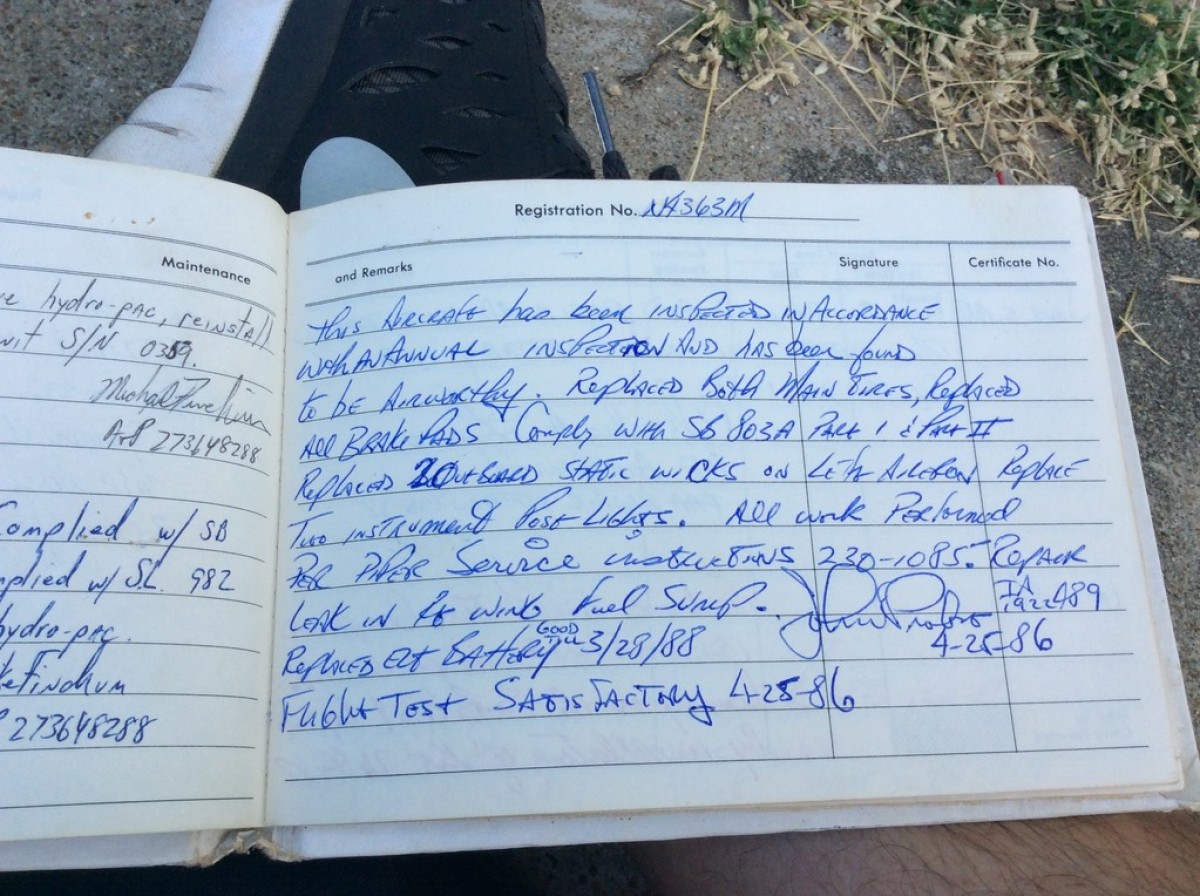 Maintenance
hydro-pac, reinstall
S/N 0359.
A&P 273648288
Complied w/ SB
w/ S.L. 982
hydro-pac.
273648288
Registration No. N4363M
and Remarks Signature Certificate No.
This Aircraft has been inspected in Accordance
with an Annual inspection and has been found
to be Airworthy. Replaced Both Main Tires, Replaced
All Brake Pads Comply with SB 803A Part I & Part II
Replaced 2 outboard static wicks on Left Aileron Replace
Two instrument Post Lights. All work Performed
Per Piper Service instructions 230-1085. Repair
Leak in Rt wing Fuel Sump. IA
Replaced ELT Battery GOOD THRU 3/28/88 4-25-86
Flight Test Satisfactory 4-25-86